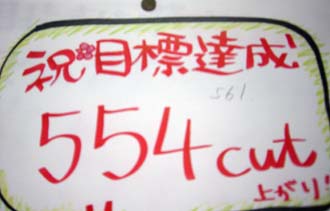 祝目標達成!
561
554cut
上がり!